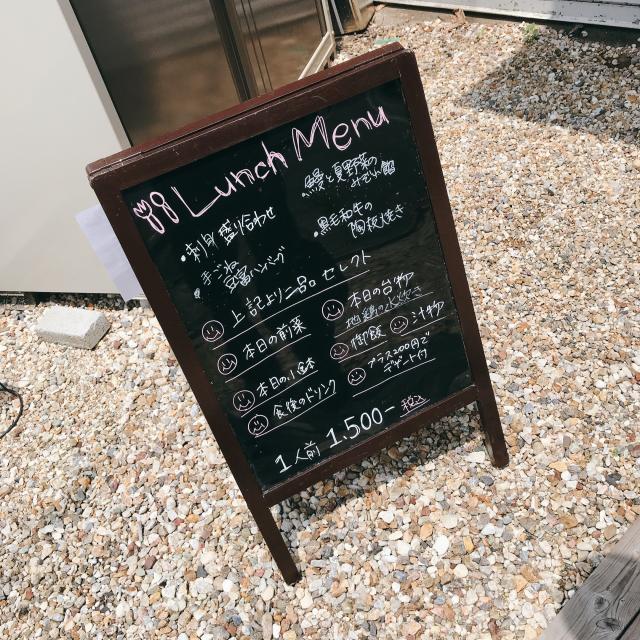 Lunch Menu
・刺身盛り合わせ
・手ごね
豆富ハンバーグ
・鰻と夏野菜の
みぞれ餡
・黒毛和牛の
陶板焼き
上記より二品セレクト
本日の前菜
本日の小鉢
食後のドリンク
本日の台物
御飯
汁物
プラス200円で
デザート付
1人前 1.500- 税込